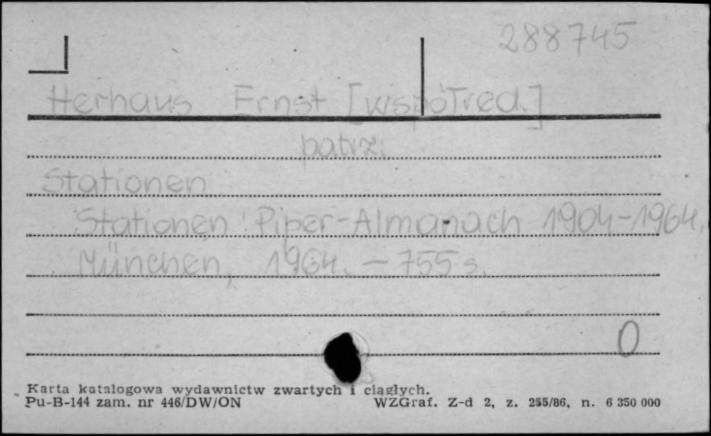 288745
Herhaus Ernst [współred.]
patrz:
Stationen
Stationen. Piper-Almanach 1904-1964.
München, 1964. - 755 s.
0
Karta katalogowa wydawnictw zwartych i ciągłych.
Pu-B-144 zam. nr 446/DW/ON WZGraf. Z-d 2, z. 255/86, n. 6 350 000